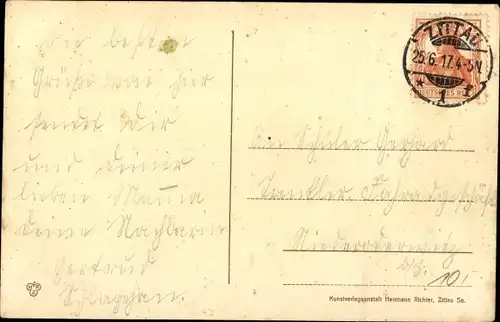 Die besten
Grüße von hier
sendet Dir
und deiner
lieben Mama
deine Nachbarin
Gertrud
ZITTAU
25/6.17.4-5N.
* 1 f
DEUTSCHES REICH
An Schüler Gerhard
Niederoderwitz
No. 101.
Kunstverlagsanstalt Hermann Richter, Zittau Sa.